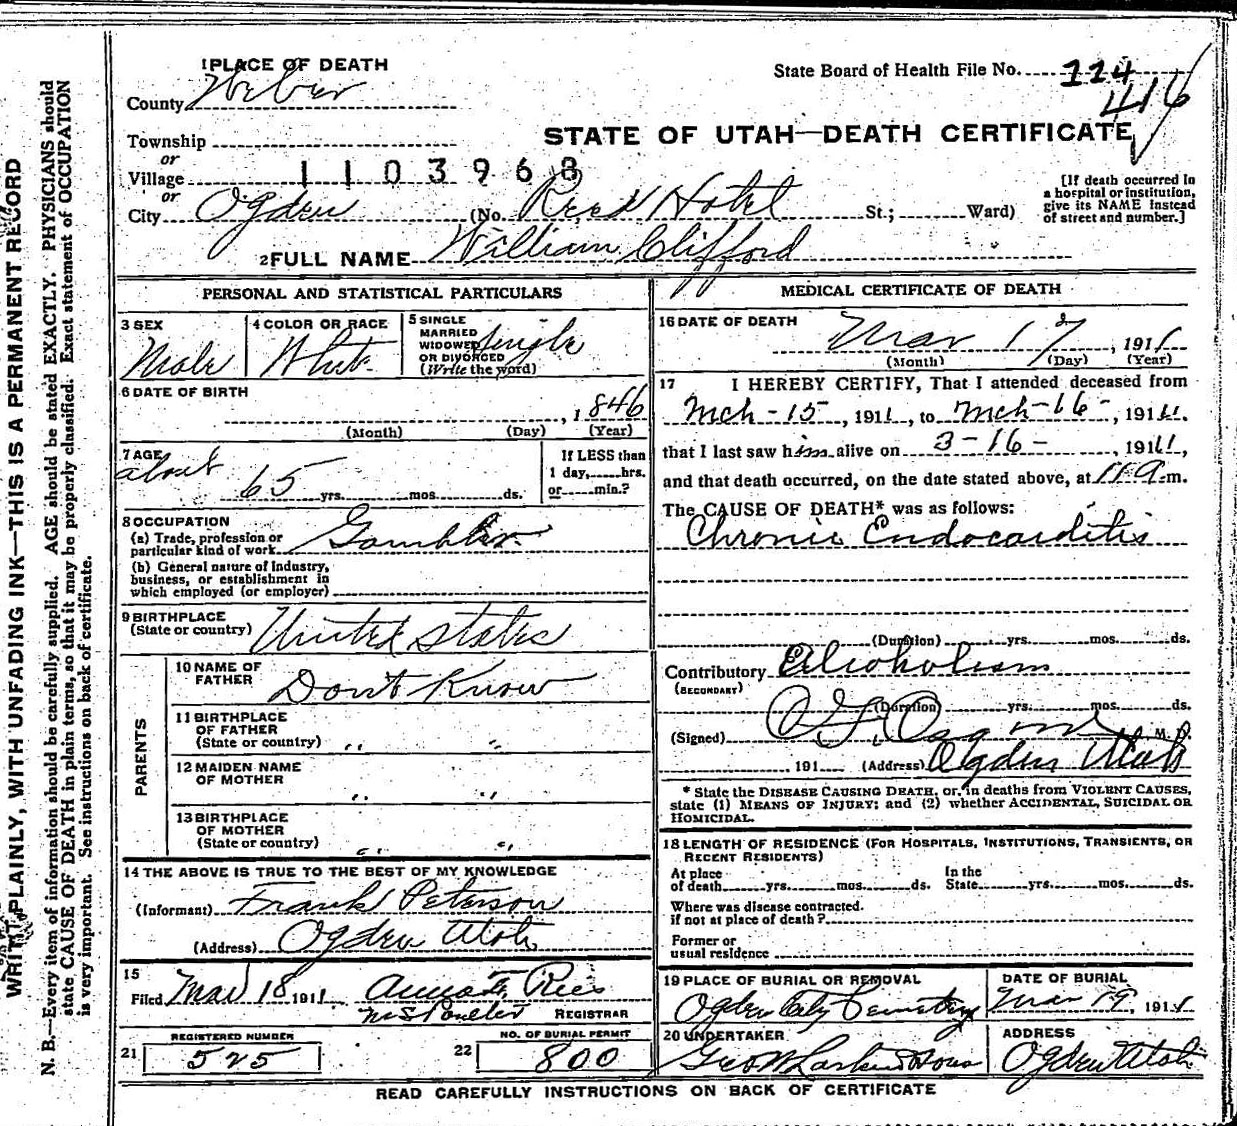 1 PLACE OF DEATH
State Board of Health File No. 224
416
County Weber
STATE OF UTAH—DEATH CERTIFICATE
Township
or
Village 1103968
or
City Ogden (No. Reed Hotel St.; Ward)
[If death occurred in
a hospital or institution,
give its NAME instead
of street and number.]
2 FULL NAME William Clifford
PERSONAL AND STATISTICAL PARTICULARS
3 SEX Male
4 COLOR OR RACE White
5 SINGLE
MARRIED
WIDOWED
OR DIVORCED
(Write the word) Single
6 DATE OF BIRTH
, 1846
(Month) (Day) (Year)
7 AGE
about 65 yrs. mos. ds.
If LESS than
1 day, hrs.
or min.?
8 OCCUPATION
(a) Trade, profession or
particular kind of work Gambler
(b) General nature of Industry,
business, or establishment in
which employed (or employer)
9 BIRTHPLACE
(State or country) United States
PARENTS
10 NAME OF
FATHER Don't Know
11 BIRTHPLACE
OF FATHER
(State or country) " "
12 MAIDEN NAME
OF MOTHER " "
13 BIRTHPLACE
OF MOTHER
(State or country) " "
14 THE ABOVE IS TRUE TO THE BEST OF MY KNOWLEDGE
(Informant) Frank Peterson
(Address) Ogden Utah
15
Filed Mar 18 1911 Rees
REGISTRAR
REGISTERED NUMBER
21 525
NO. OF BURIAL PERMIT
22 800
MEDICAL CERTIFICATE OF DEATH
16 DATE OF DEATH
Mar 17, 1911
(Month) (Day) (Year)
17 I HEREBY CERTIFY, That I attended deceased from
Mch-15, 1911, to Mch-16-, 1911.
that I last saw him alive on 3-16-, 1911,
and that death occurred, on the date stated above, at m.
The CAUSE OF DEATH* was as follows:
Chronic Endocarditis
(Duration) yrs. mos. ds.
Contributory Alcoholism
(SECONDARY)
(Duration) yrs. mos. ds.
(Signed) M. D.
191 (Address) Ogden Utah
* State the DISEASE CAUSING DEATH, or, in deaths from VIOLENT CAUSES,
state (1) MEANS OF INJURY; and (2) whether ACCIDENTAL, SUICIDAL OR
HOMICIDAL.
18 LENGTH OF RESIDENCE (FOR HOSPITALS, INSTITUTIONS, TRANSIENTS, OR
RECENT RESIDENTS)
At place
of death yrs. mos. ds.
In the
State yrs. mos. ds.
Where was disease contracted.
if not at place of death?
Former or
usual residence
19 PLACE OF BURIAL OR REMOVAL
Ogden City Cemetery
DATE OF BURIAL
Mar 19, 1911
20 UNDERTAKER
Geo W Larkin & Sons
ADDRESS
Ogden Utah
READ CAREFULLY INSTRUCTIONS ON BACK OF CERTIFICATE
WRITE PLAINLY, WITH UNFADING INK—THIS IS A PERMANENT RECORD
N. B.—Every item of information should be carefully supplied. AGE should be stated EXACTLY. PHYSICIANS should
state CAUSE OF DEATH in plain terms, so that it may be properly classified. Exact statement of OCCUPATION
is very important. See instructions on back of certificate.